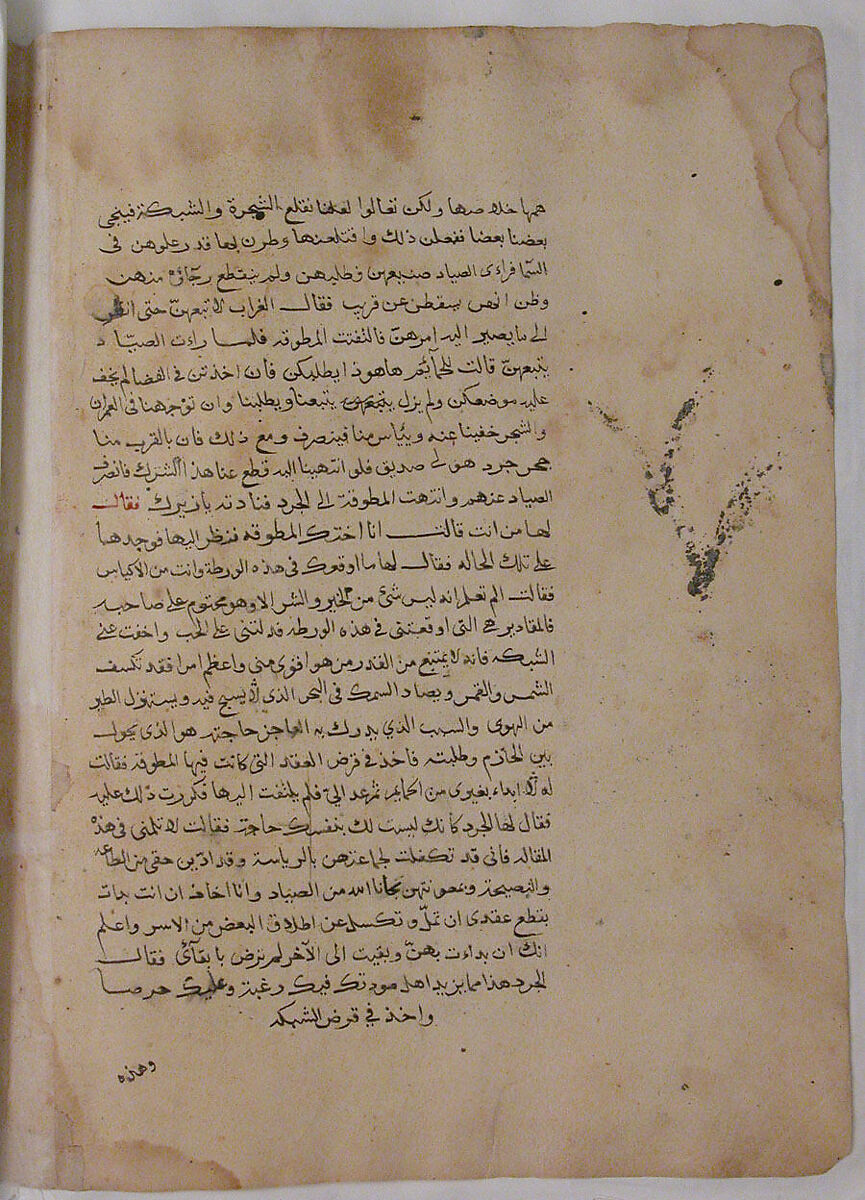 همها خلاصها ولكن تعالوا لعلنا نقلع الشجرة والشبكة فينجي
بعضنا بعضا ففعلن ذلك واقتلعنها وطرن بها قد علون في
السما فراءى الصياد صنيعهن فطلبهن ولم ينقطع رجآؤه منهن
وظن انهن يسقطن عن قريب فقال الغراب لاتبعهنّ حتى انظر
الى ما يصير اليه امرهنّ فالتفتت المطوقه فلما راءت الصيّاد
يتبعهنّ قالت للحمآيم هاهوذا يطلبكن فان اخذتن في الفضا لم يخف
عليه موضعكن ولم يزل يتبعنا ويطلبنا وان توجهنا في العمران
والشجر خفينا عنه ويئاس منا فينصرف ومع ذلك فان بالقرب منا
جحر جرد هو لى صديق فلو انتهينا اليه قطع عنا هذا الشرك فانصرف
الصياد عنهم وانتهت المطوقة الى الجرد فنادته يا زيرك فقال
لها من انت قالت انا اختك المطوقه فنظر اليها فوجدها
على تلك الحاله فقال لها ما اوقعك في هذه الورطة وانت من الاكياس
فقالت الم تعلم انه ليس شئ من الخير والشر الا وهو محتوم على صاحبه
فالمقادير هي التى اوقعتنى في هذه الورطه قد لتنى على الحب واخفت عنى
الشبكه فانه لا يمتنع من القدر من هو اقوى منى واعظم امرا فقد تكسف
الشمس والقمر ويصاد السمك في البحر الذي لا يسبح فيه ويستنزل الطير
من الهوى والسبب الذي يدرك به العاجز حاجته هو الذى يحول
بين الحازم وطلبته فاخذ في قرض العقد التى كانت فيها المطوقه فقالت
له ابداء بغيرى من الحمايم ثم عد الىّ فلم يلتفت اليها فكررت ذلك عليه
فقال لها الجرد كانك ليست لك بنفسك حاجة فقالت لا تلمنى في هذه
المقاله فانى قد تكفلت لجماعتهن بالرياسة وقد ادّين حقى من الطاعه
والنصيحة وبمعونتهن نجانا الله من الصياد وانا اخاف ان انت بدات
بقطع عقدى ان تملّ وتكسل عن اطلاق البعض من الاسر واعلم
انك ان بداءت بهنّ وبقيت الى الآخر لم ترض بابقآئ فقال
الجرد هذا مما يزيد اهل مودتك فيك رغبة وعليك حرصا
واخذ في قرض الشبكه
وهذه